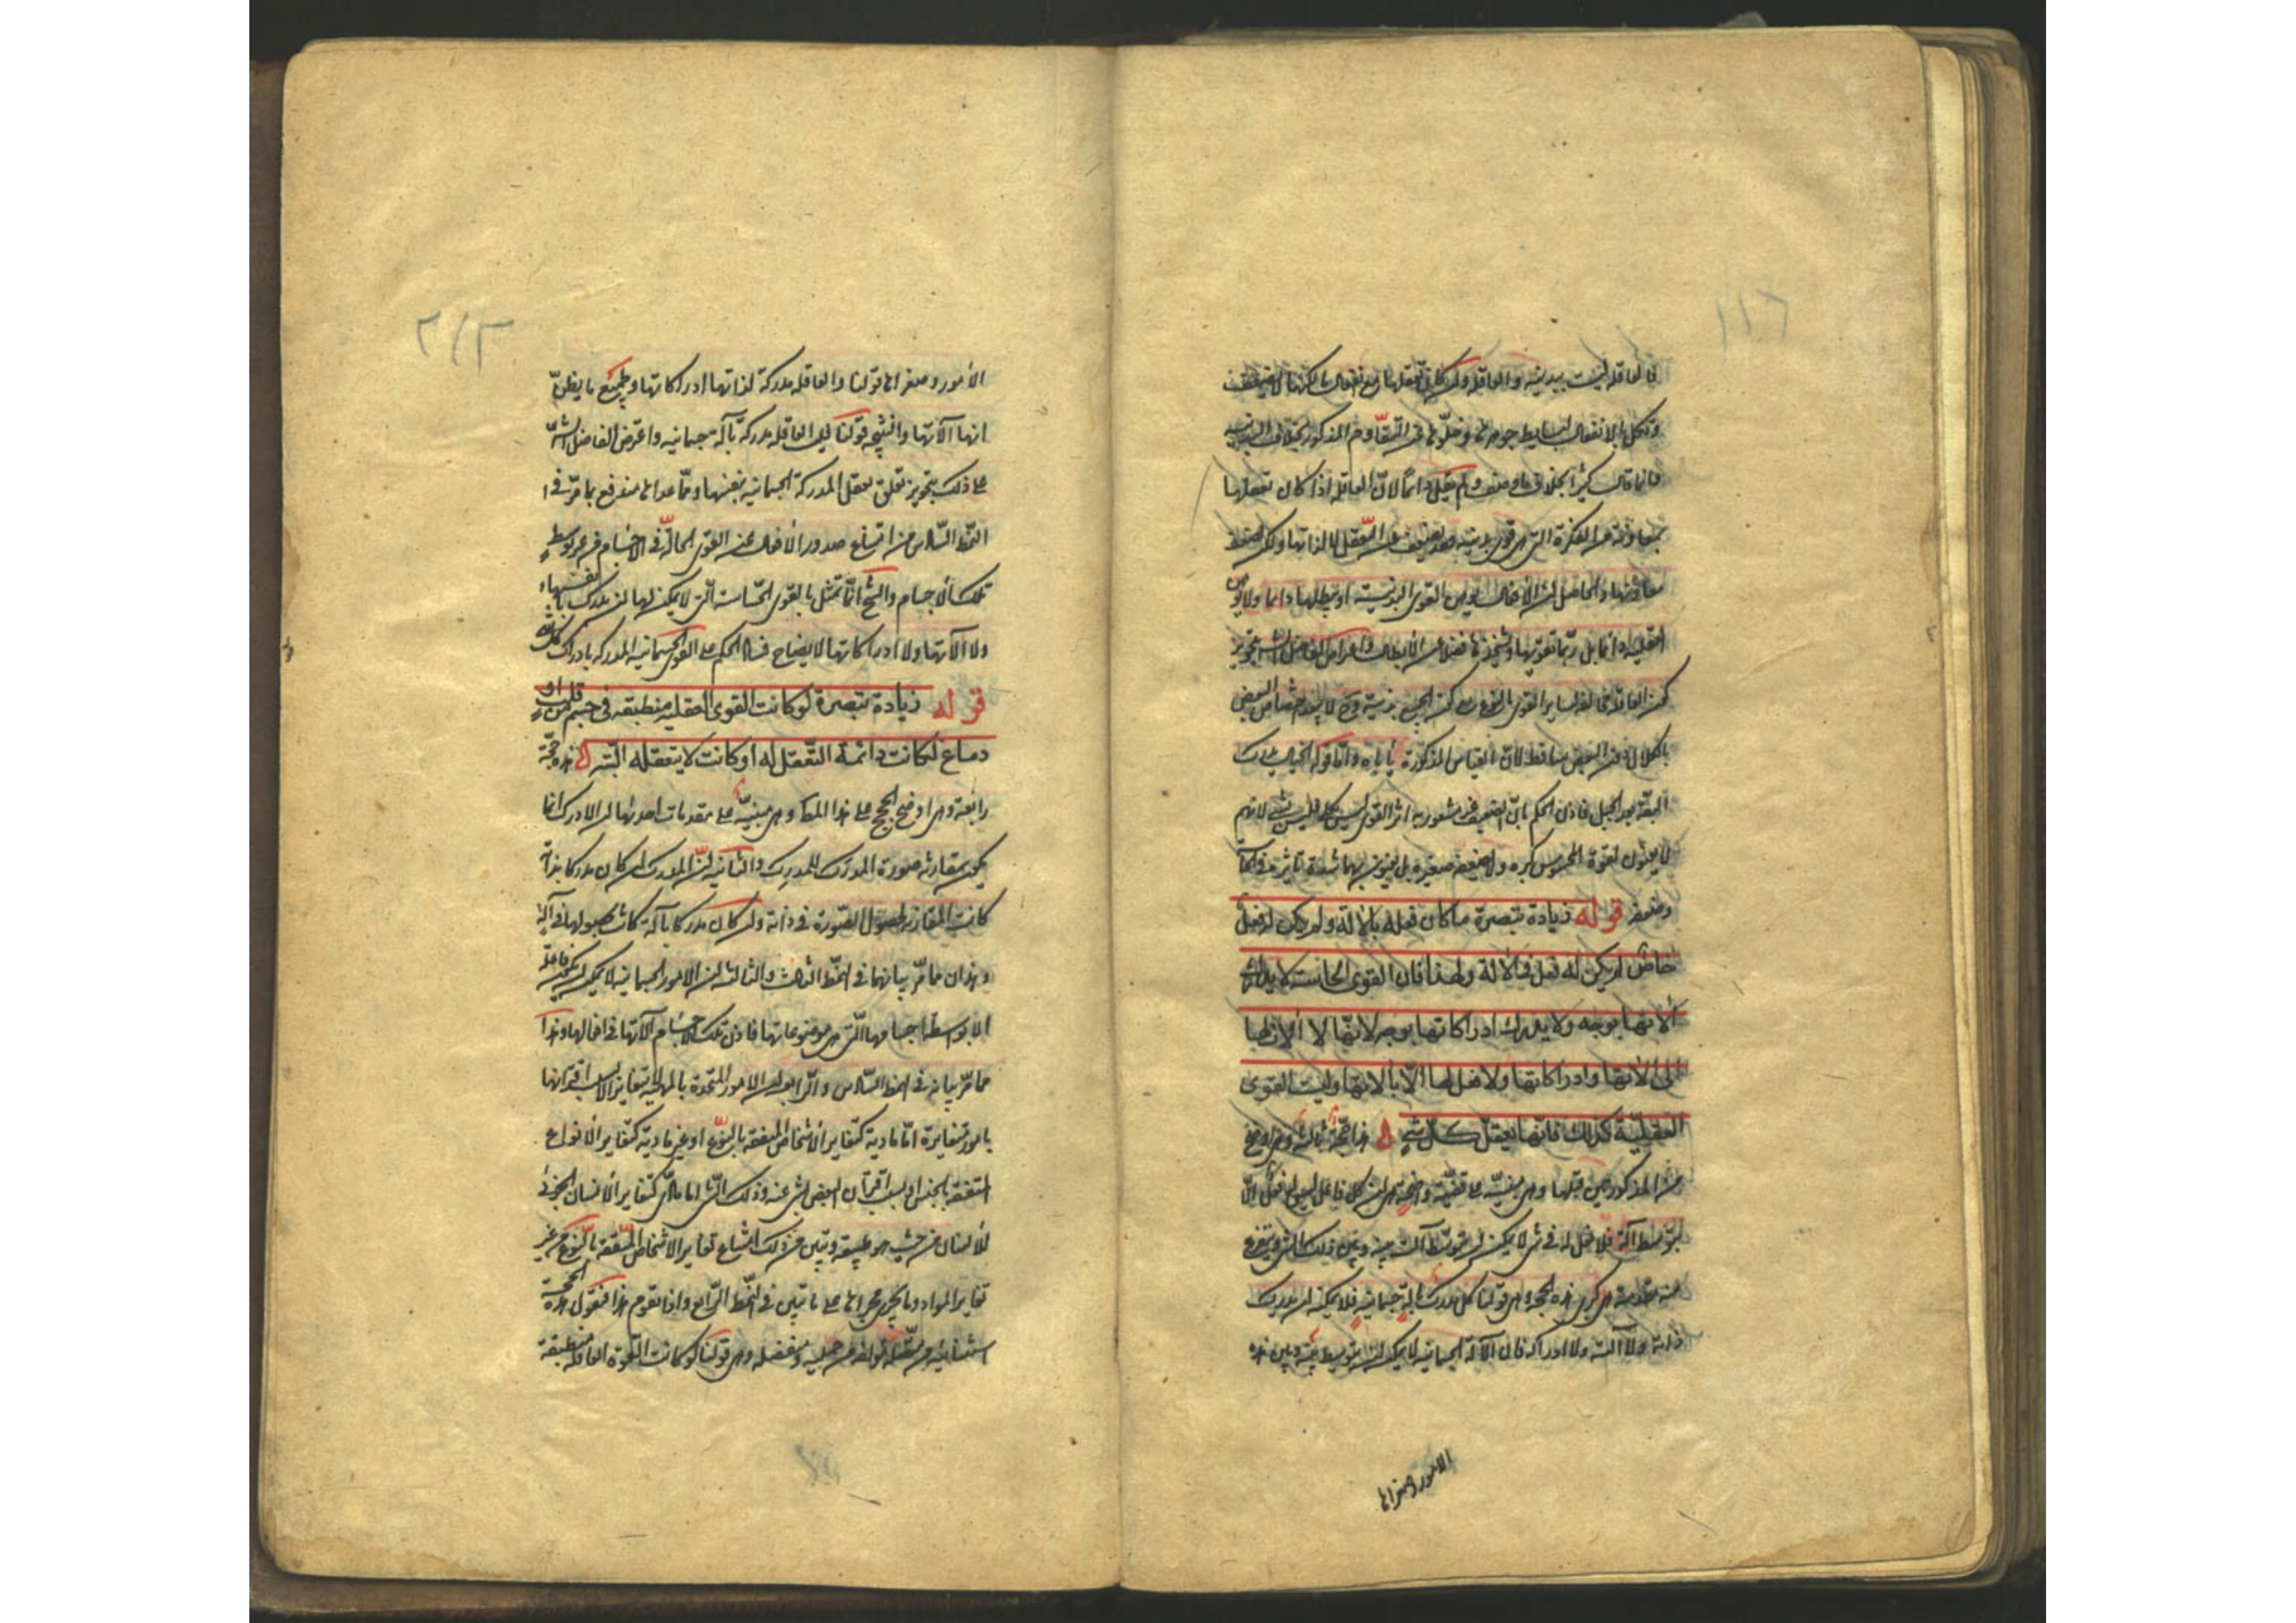 فالعاقلة ليست ببدنية والعاقلة وان كان تعقلها مع انفعال ما لكنها لا تضعف
وتكل بالانفعال لبساطة جوهرها وخلوها عن التقاوم المذكور بخلاف البدنية
وانما قال كثيرا بخلاف ما وصف ولم يقل دائما لان العاقلة اذا كان تعقلها
بمعاونة من الفكرة التي هي قوى بدنية فقد تضعف عن التعقل لا لذاتها ولكن لضعف
معاونها والحاصل ان الافعال توهن القوى البدنية او تبطلها دائما ولا توهن
العقلية دائما بل ربما تقويها وتشحذها فضلا عن الابطال واعتراض الفاضل الشارح بتجويز
كون العاقلة مخالفة لساير القوى بالنوع مع كون الجميع بدنية وح لا يبعد اختصاص البعض
بالكلال دون البعض ساقط لان القياس المذكور يأباه واما قوله الخيال يدرك
البقة بعد الجبل فاذن الحكم بان الضعيف غير مشعور به اثر القوى ليس بكلى فليس بشئ لانهم
لا يعنون بقوة المحسوس كبره ولا بضعفه صغره بل يعنون بهما شدة تاثيره في الحاسة
وضعفه قوله زيادة تبصرة ما كان فعله بالآلة ولم يكن له فعل
خاص لم يكن له فعل في الآلة ولهذا فان القوى الحاسة لا تدرك
آلاتها بوجه ولا تدرك ادراكاتها بوجه لانها لا آلات لها
الى آلاتها وادراكاتها ولا فعل لها الا بآلاتها وليست القوى
العقلية كذلك فانها تعقل كل شئ هذه حجة ثالثة وهي اوضح
من المذكورتين قبلها وهي مبنية على قضية واضحة هي ان كل فاعل ليس له فعل الا
بتوسط آلة فلا فعل له في شئ لا يمكن ان يتوسط آلته بينه وبين ذلك الشئ ويتفرع
منه مقدمة هي كبرى هذه الحجة وهي قولنا كل مدرك بآلة جسمانية فلا يمكنه ان يدرك
ذاته ولا آلته ولا ادراكه فان الآلة الجسمانية لا يمكن ان يتوسط بينه وبين هذه
الامور وصغراها
الامور وصغراها قولنا والعاقلة مدركة لذاتها ولادراكاتها ولجميع ما يظن
انها آلاتها والنتيجة قولنا فليس العاقلة مدركة بآلة جسمانية واعترض الفاضل الش
على ذلك بتجويز تعلق تعقل المدركة الجسمانية بنفسها وما عداها مندفع بما مر في
النمط السادس من امتناع صدور الافعال عن القوى الحالة في الاجسام من غير توسط
تلك الاجسام والشيخ انما تمثل بالقوى الحساسة التي لا يمكن لها ان تدرك انفسها
ولا آلاتها ولا ادراكاتها لايضاح فساد الحكم على القوى الجسمانية المدركة بادراك كل شئ
قوله زيادة تبصرة لو كانت القوى العقلية منطبقة في جسم من قلب او
دماغ لكانت دائمة التعقل له او كانت لا يتعقله البتة هذه حجة
رابعة وهي اوضح الحجج على هذا المط وهي مبنية على مقدمات احدها ان الادراك انما
يكون بمقارنة صورة المدرك للمدرك والثانية ان المدرك ان كان مدركا بذاته
كانت المقارنة بحصول الصورة في ذاته وان كان مدركا بآلة كانت بحصولها في آلته
وهذان مما مر بيانهما في النمط الثالث والثالثة ان الامور الجسمانية لا يمكن ان يكون فاعلة
الا بواسطة اجسامها التي هي موضوعاتها فاذن تلك الاجسام آلاتها في افعالها وهذا
مما مر بيانه في النمط السادس والرابعة ان الامور المتحدة بالمهية لا تتغاير الا بسبب اقترانها
بامور متغايرة اما مادية كتغاير الاشخاص المتفقة بالنوع او غير مادية كتغاير الانواع
المتفقة بالجنس او بسبب اقتران البعض بشئ عنه وذلك الشئ اما مادى كتغاير الانسان الجزئي
للانسان من حيث هو طبيعة وتبين من ذلك امتناع تغاير الاشخاص المتفقة بالنوع من غير
تغاير المواد وما يجرى مجراها على ما تبين في النمط الرابع واذا تقدم هذا فنقول هذه الحجة
استثنائية من متصلة مؤلفة من حملية ومنفصلة وهي قولنا لو كانت القوة العاقلة منطبعة